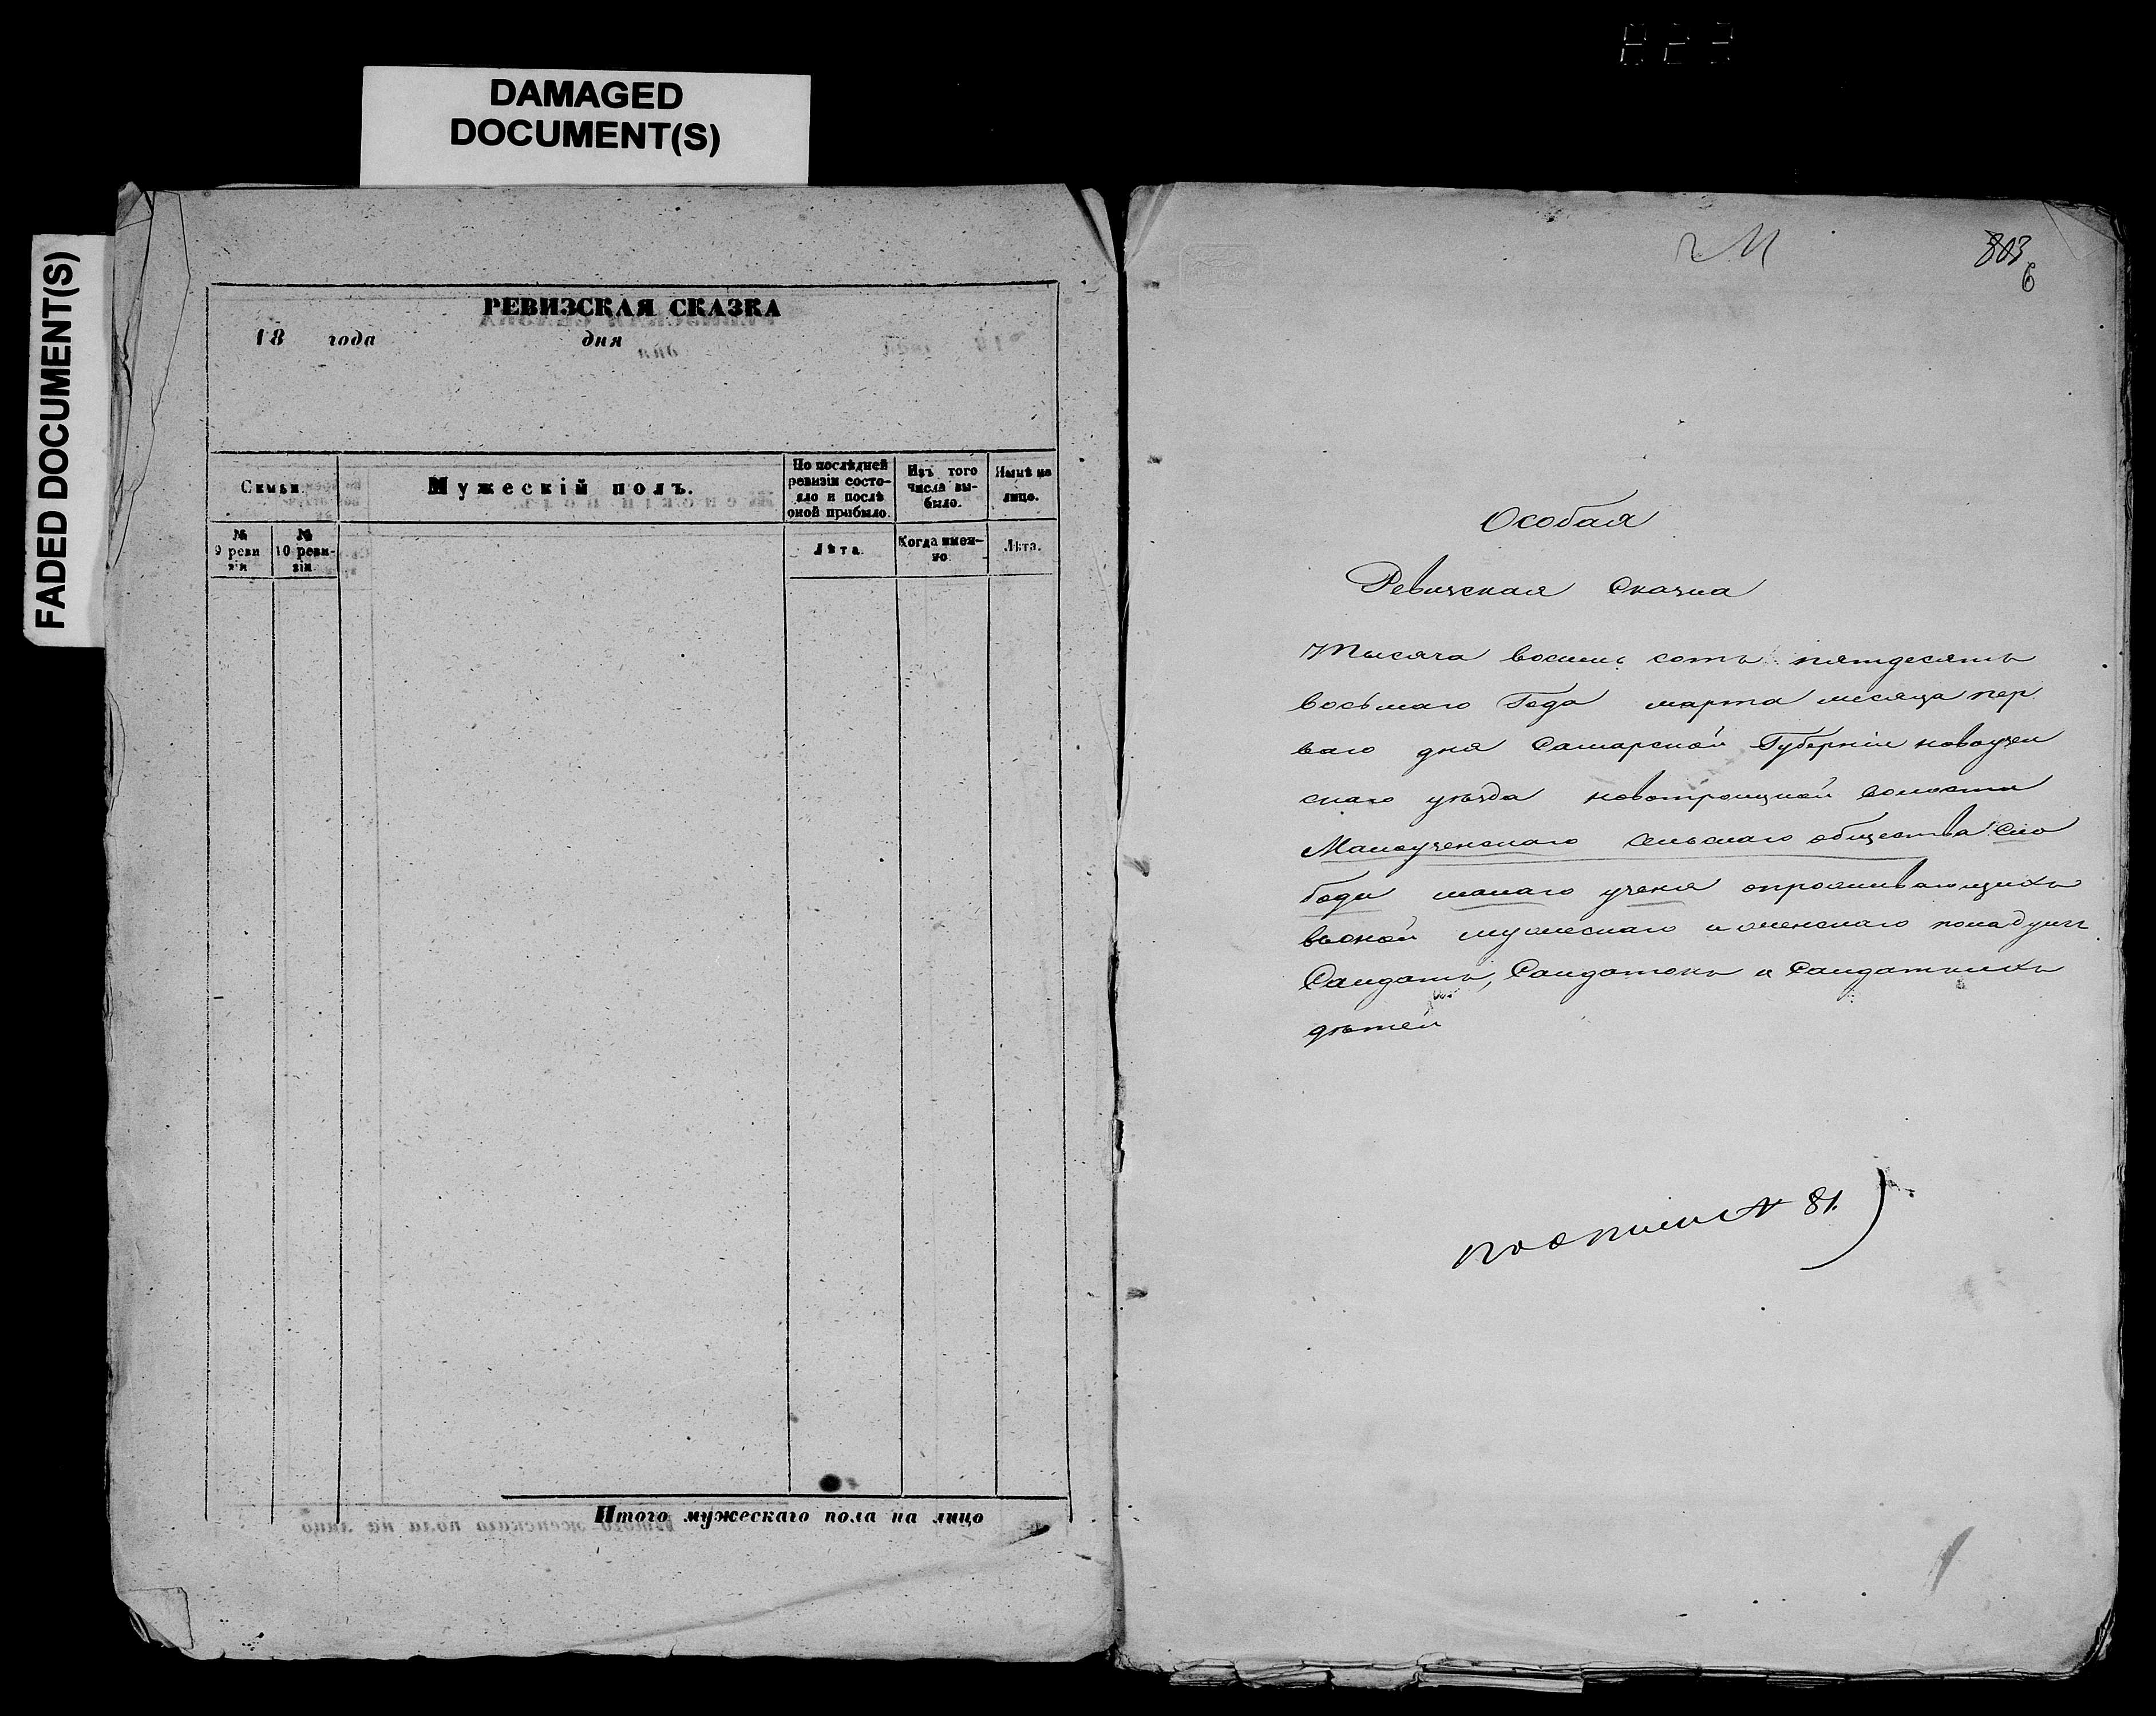 DAMAGED
DOCUMENT(S)
FADED DOCUMENT(S)
РЕВИЗСКАЯ СКАЗКА
18 года дня
Семьи.
Мужескій полъ.
По послѣдней
ревизіи состо-
яло и послѣ
оной прибыло.
Изъ того
числа вы-
было.
Нынѣ на
лицо.
№
9 реви
зіи
№
10 реви-
зіи.
Лѣта.
Когда имен-
но.
Лѣта.
Итого мужескаго пола на лицо
803
6
Особая
Ревизская Сказка
Тысяча восемь сотъ пятдесятъ
восьмаго Года марта месяца пер
ваго дня Самарской Губерніи новоузен
скаго уѣзда новотроицкой волости
Малоузенскаго сельскаго общества Сло
боды малаго узеня опросшивающихъ
вьоной мужескаго и женскаго пола душъ
Салдатъ, Салдатокъ и Салдатскихъ
дѣтей
по описи № 81.